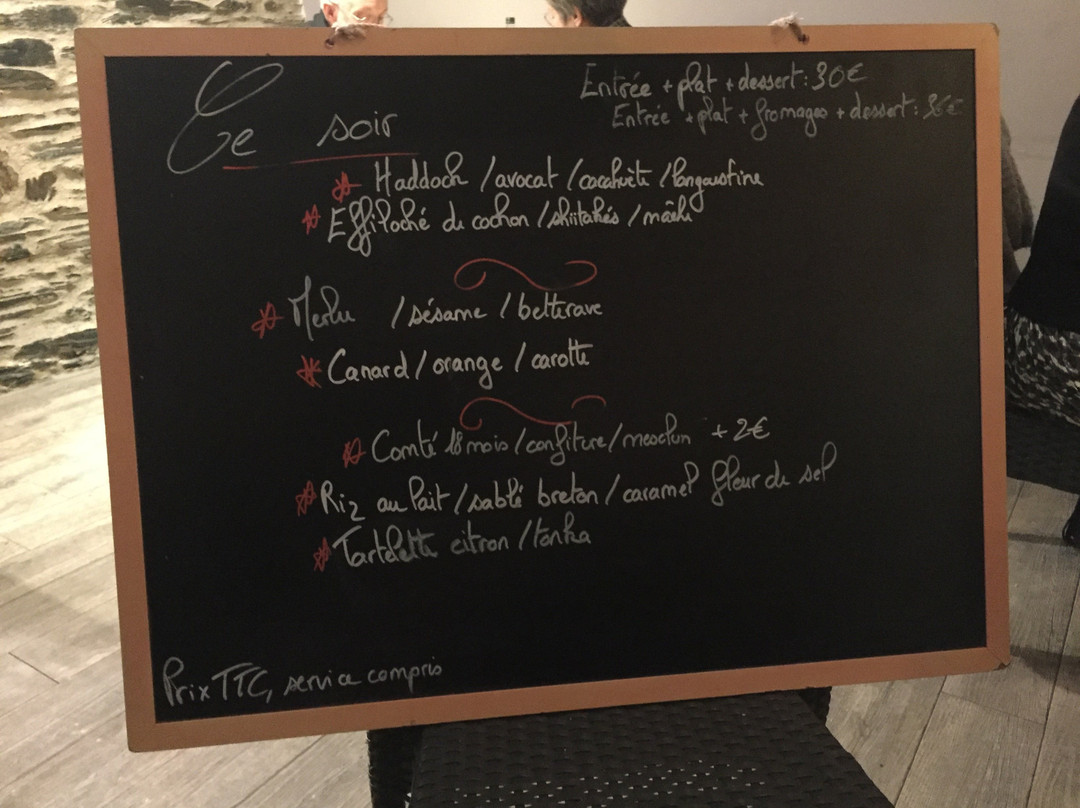 Entrée + plat + dessert: 30€
Entrée + plat + fromages + dessert: 36€
Ce soir
Haddock / avocat / cacahuète / langoustine
Effiloché de cochon / shiitakés / mâche
Merlu / sésame / betterave
Canard / orange / carotte
Comté 18 mois / confiture / mesclun + 2€
Riz au lait / sablé breton / caramel fleur de sel
Tartelette citron / tonka
Prix TTC, service compris